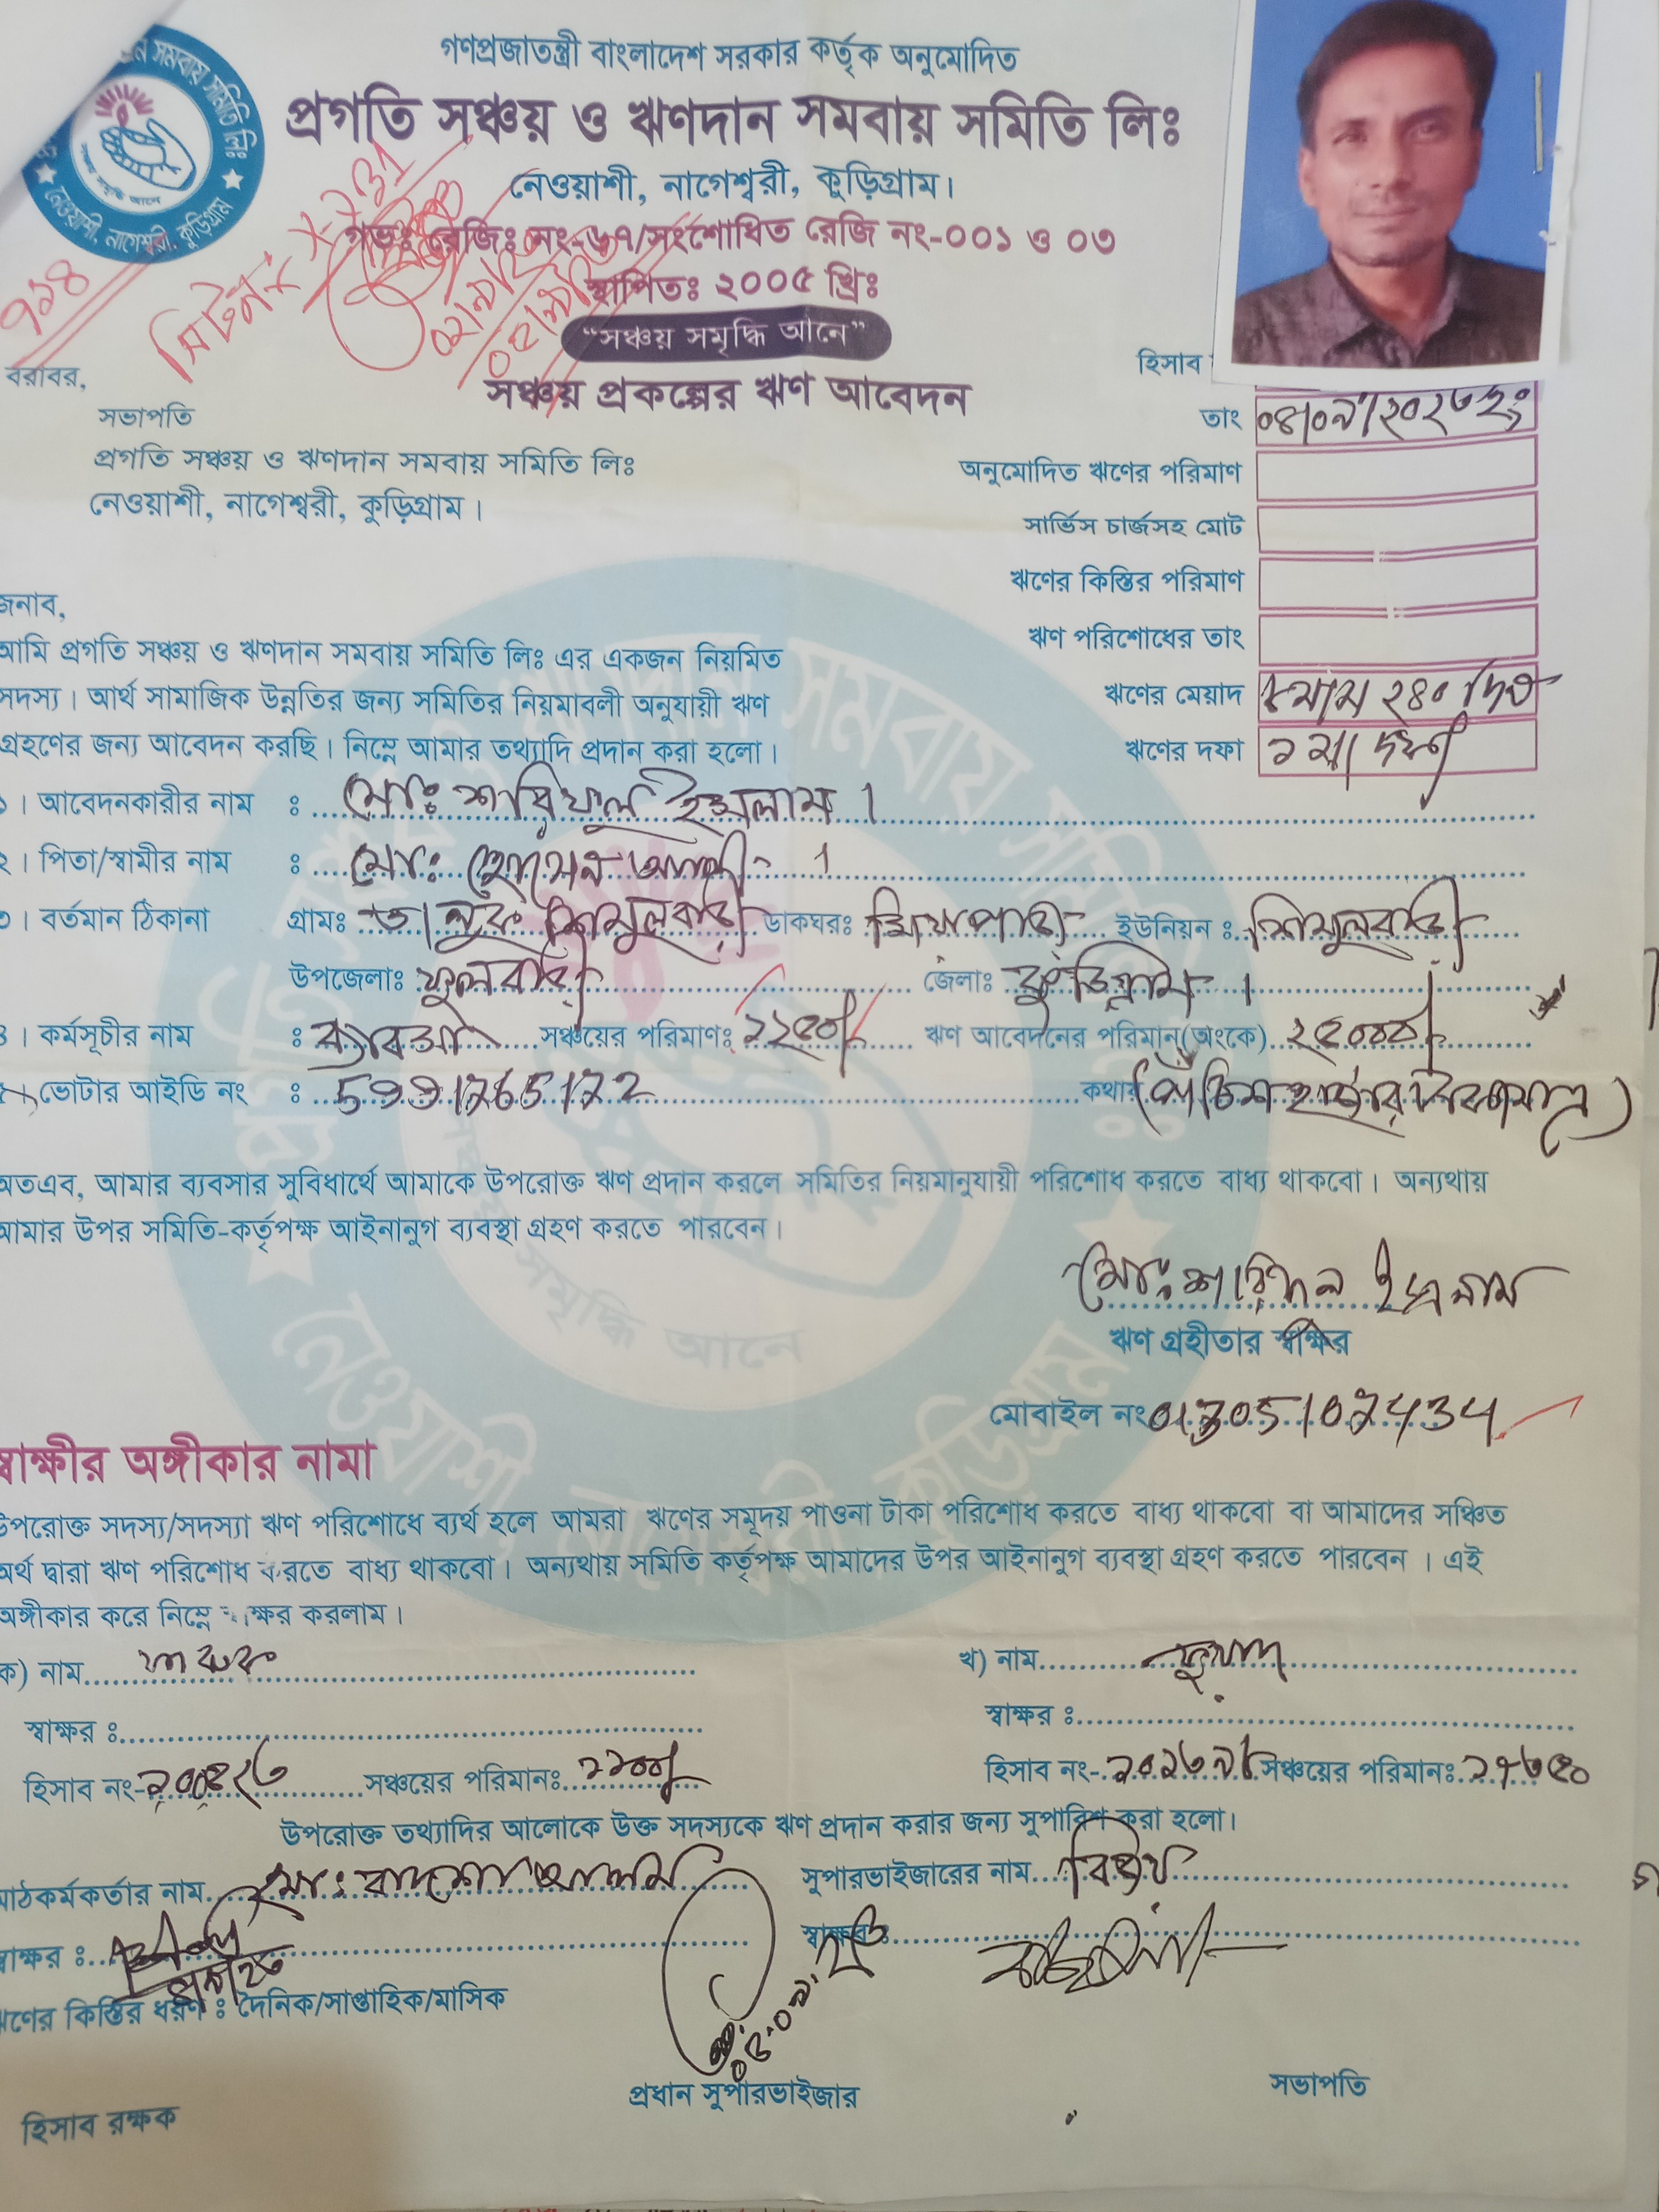 গণপ্রজাতন্ত্রী বাংলাদেশ সরকার কর্তৃক অনুমোদিত
প্রগতি সঞ্চয় ও ঋণদান সমবায় সমিতি লিঃ
নেওয়াশী, নাগেশ্বরী, কুড়িগ্রাম।
গভঃ রেজিঃ নং-৬৭/সংশোধিত রেজি নং-০০১ ও ০৩
স্থাপিতঃ ২০০৫ খ্রিঃ
“সঞ্চয় সমৃদ্ধি আনে”
সঞ্চয় প্রকল্পের ঋণ আবেদন
৭১৪
হিসাব
বরাবর,
সভাপতি
প্রগতি সঞ্চয় ও ঋণদান সমবায় সমিতি লিঃ
নেওয়াশী, নাগেশ্বরী, কুড়িগ্রাম।
তাং ০৪/০৯/২০২৩ইং
অনুমোদিত ঋণের পরিমাণ
সার্ভিস চার্জসহ মোট
ঋণের কিস্তির পরিমাণ
ঋণ পরিশোধের তাং
ঋণের মেয়াদ ২৪০ দিন
ঋণের দফা ১ম দফা
জনাব,
আমি প্রগতি সঞ্চয় ও ঋণদান সমবায় সমিতি লিঃ এর একজন নিয়মিত
সদস্য। আর্থ সামাজিক উন্নতির জন্য সমিতির নিয়মাবলী অনুযায়ী ঋণ
গ্রহণের জন্য আবেদন করছি। নিম্নে আমার তথ্যাদি প্রদান করা হলো।
১। আবেদনকারীর নাম ঃ মোঃ শরিফুল ইসলাম।
২। পিতা/স্বামীর নাম ঃ মোঃ হোসেন আলী।
৩। বর্তমান ঠিকানা গ্রামঃ তালুক শিমুলবাড়ী ডাকঘরঃ মিয়াপাড়া ইউনিয়ন ঃ শিমুলবাড়ী
উপজেলাঃ ফুলবাড়ী জেলাঃ কুড়িগ্রাম।
৪। কর্মসূচীর নাম ঃ ব্যাবসা সঞ্চয়ের পরিমাণঃ ১২৫০/- ঋণ আবেদনের পরিমান(অংকে) ২৫০০০/-
৫। ভোটার আইডি নং ঃ 5991765172 কথায় (পঁচিশ হাজার টাকা মাত্র)
অতএব, আমার ব্যবসার সুবিধার্থে আমাকে উপরোক্ত ঋণ প্রদান করলে সমিতির নিয়মানুযায়ী পরিশোধ করতে বাধ্য থাকবো। অন্যথায়
আমার উপর সমিতি-কর্তৃপক্ষ আইনানুগ ব্যবস্থা গ্রহণ করতে পারবেন।
মোঃ শরিফুল ইসলাম
ঋণ গ্রহীতার স্বাক্ষর
মোবাইল নং
স্বাক্ষীর অঙ্গীকার নামা
উপরোক্ত সদস্য/সদস্যা ঋণ পরিশোধে ব্যর্থ হলে আমরা ঋণের সমূদয় পাওনা টাকা পরিশোধ করতে বাধ্য থাকবো বা আমাদের সঞ্চিত
অর্থ দ্বারা ঋণ পরিশোধ করতে বাধ্য থাকবো। অন্যথায় সমিতি কর্তৃপক্ষ আমাদের উপর আইনানুগ ব্যবস্থা গ্রহণ করতে পারবেন । এই
অঙ্গীকার করে নিম্নে স্বাক্ষর করলাম।
ক) নাম খ) নাম
স্বাক্ষর ঃ স্বাক্ষর ঃ
হিসাব নং- সঞ্চয়ের পরিমানঃ হিসাব নং- সঞ্চয়ের পরিমানঃ
উপরোক্ত তথ্যাদির আলোকে উক্ত সদস্যকে ঋণ প্রদান করার জন্য সুপারিশ করা হলো।
মাঠকর্মকর্তার নাম মোঃ বাদশা আলম সুপারভাইজারের নাম
স্বাক্ষর ঃ স্বাক্ষর ঃ
ঋণের কিস্তির ধরণ ঃ দৈনিক/সাপ্তাহিক/মাসিক
হিসাব রক্ষক প্রধান সুপারভাইজার সভাপতি